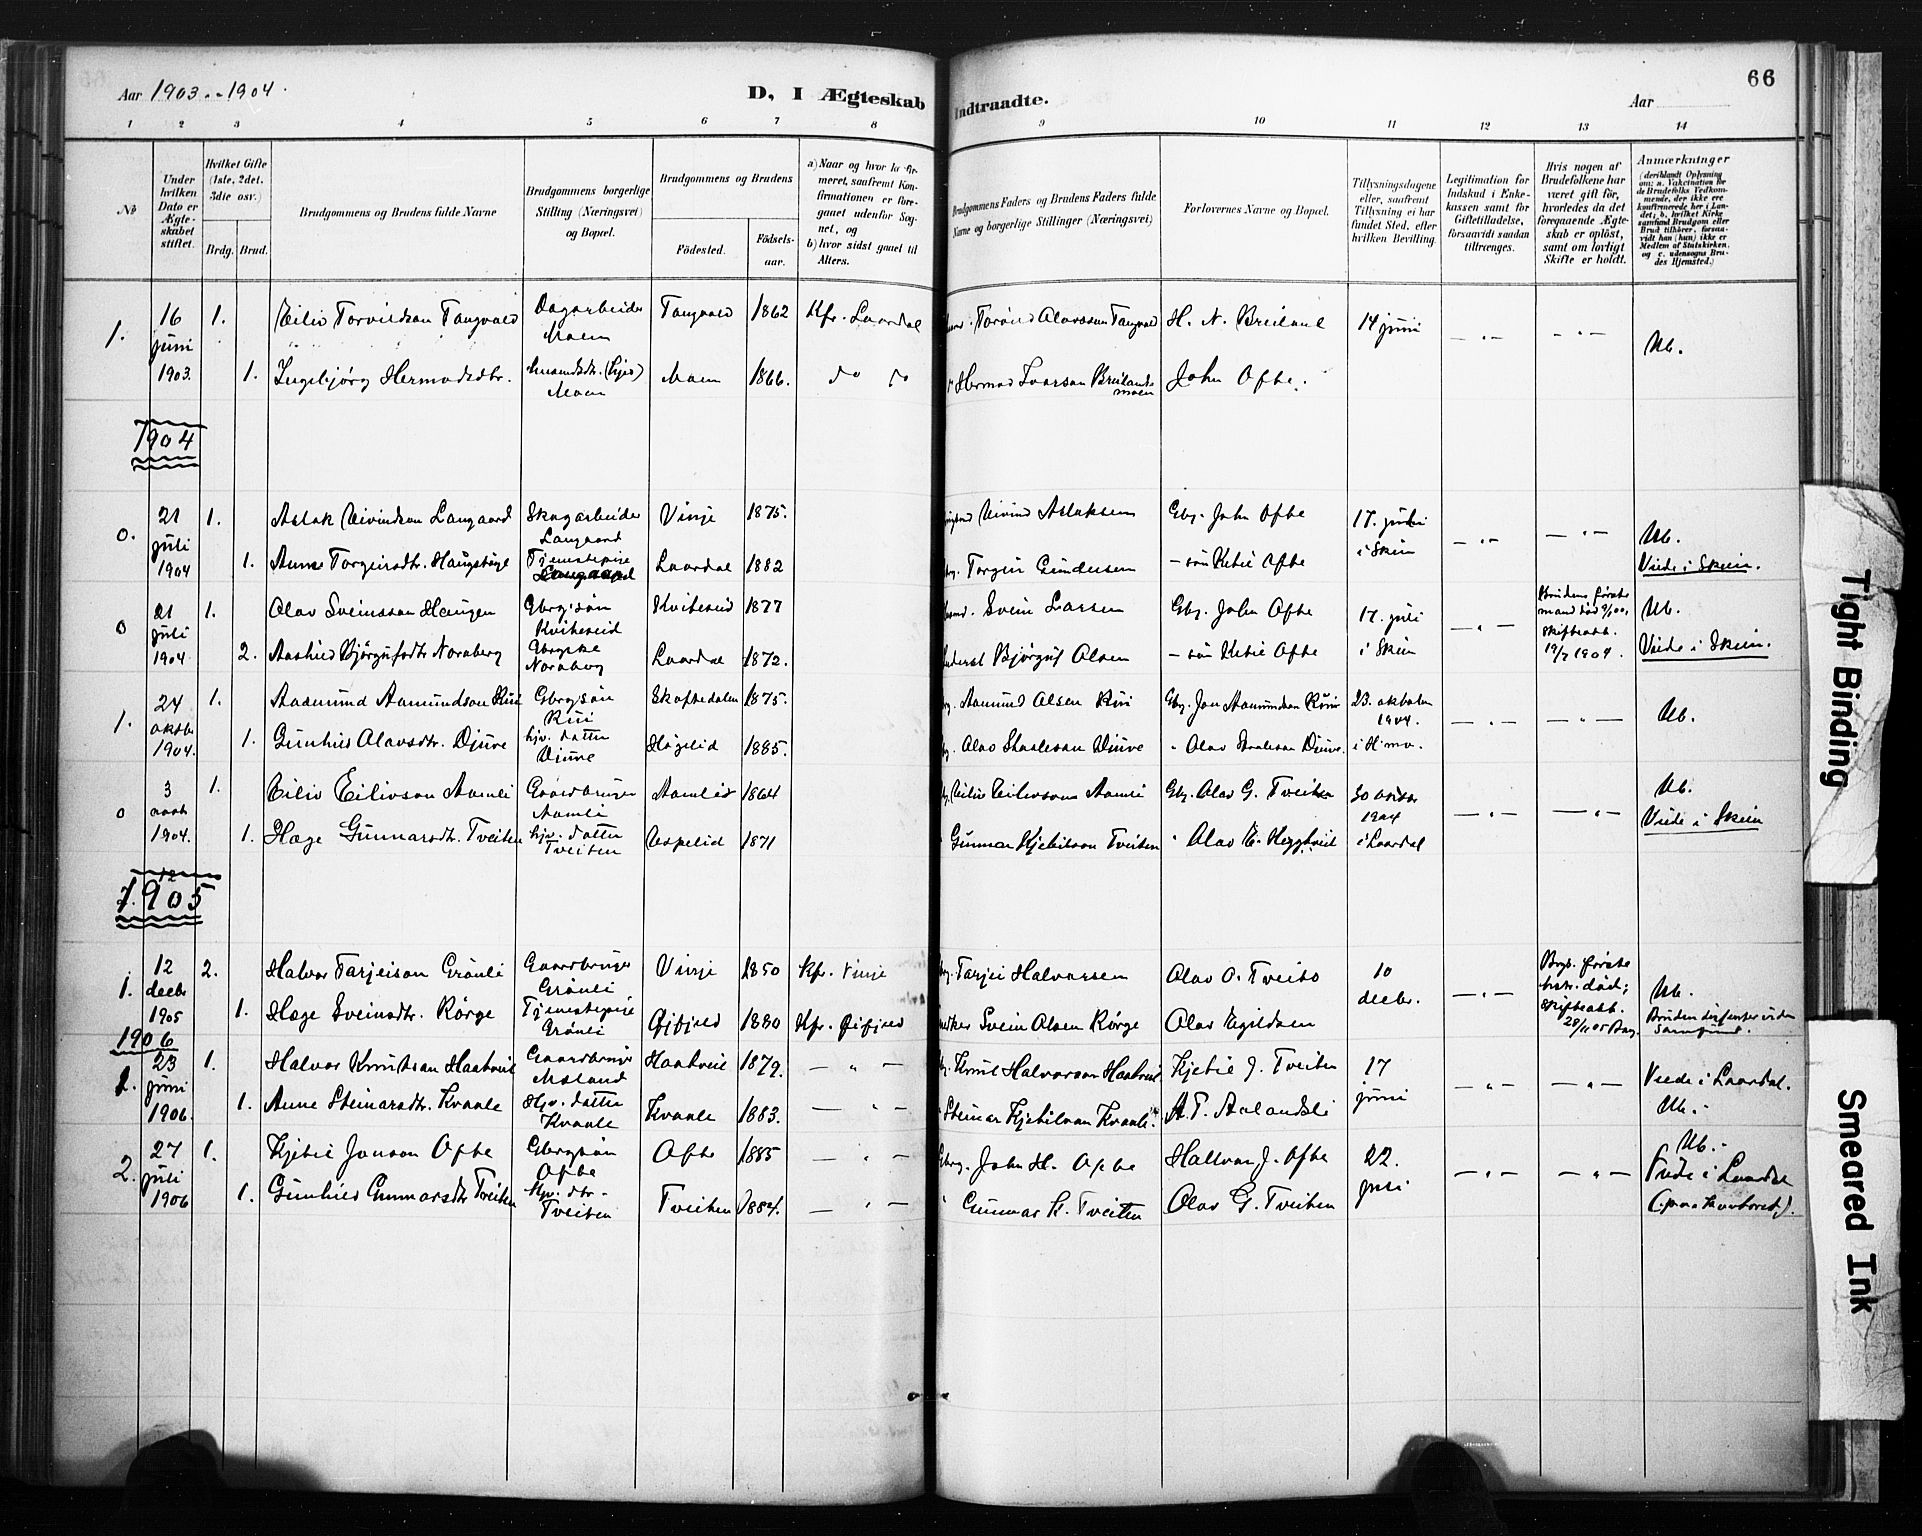 Aar 1903 - 1904.
D, I Ægteskab Indtraadte.
Aar
66
1 2 3 4 5 6 7 8 9 10 11 12 13 14
No
Under hvilken Dato er Ægteskabet stiftet.
Hvilket Gifte (1ste, 2det, 3die osv.)
Brdg. Brud.
Brudgommens og Brudens fulde Navne
Brudgommens borgerlige Stilling (Næringsvei) og Bopæl.
Brudgommens og Brudens
Fødested.
Fødselsaar.
a) Naar og hvor konfirmeret, saafremt Konfirmationen er foregaaet udenfor Sognet, og
b) hvor sidst gaaet til Alters.
Brudgommens Faders og Brudens Faders fulde Navne og borgerlige Stillinger (Næringsvei)
Forlovernes Navne og Bopæl.
Tillysningsdagene eller, saafremt Tillysning ei har fundet Sted, efter hvilken Bevilling.
Legitimation for Indskud i Enkekassen samt for Giftetilladelse, forsaavidt saadan tiltrænges.
Hvis nogen af Brudefolkene har været gift før, hvorledes da det foregaaende Ægteskab er opløst, samt om lovligt Skifte er holdt.
Anmærkninger
(deriblandt Oplysning om: a. Vakcination for de Brudefolks Vedkommende, der ikke ere konfirmerede her i Landet; b. hvilket Kirkesamfund Brudgom eller Brud tilhører, forsaavidt han (hun) ikke er Medlem af Statskirken, og c. udensogns Brudes Hjemsted.)
1. 16 juni 1903. 1. Eiliv Torvildson Tangvald Dagarbeider Moen Tangvald 1862 Kfr. Laardal Alavsson Tangvald H. N. Breiland 14 juni - " - - " - Ub.
1. Ingebjørg Hermodsdtr. Moen Moen 1866. do do Hermod Ivarson Breilandsmoen John Ofte.
1904
0. 21 juli 1904 1. Aslak Eivindson Langaard Skogarbeider Langaard Vinje 1875. Eivind Aslaksen Gbg. John Ofte 17. juli i Skien - " - - " - Ub.
1. Anne Torgeirsdtr. Haugstøyl Tjenestepige Laardal 1882 Torgeir Gundersen - søn Ketil Ofte Viede i Skien.
0 21 juli 1904 1. Olav Sveinsson Haugen Gbrg.søn Kviteseid Kviteseid 1877 Svein Larsen Gbg. John Ofte 17. juli i Skien - " - Brudens første mand død 9/00, skifteatt. 19/7 1904. Ub.
2. Aashild Bjørgufsdtr Noraberg Noraberg Laardal 1872. Bjørguf Olsen - søn Ketil Ofte Viede i Skien.
1. 24 oktbr 1904. 1. Aasmund Aamundson Rui Gbrgsøn Rui Skaftedalen 1875. Aamund Olsen Rui Gbg. Jon Aamundson Rui 23. oktober 1904. - " - - " - Ub.
1. Gunhild Olavsdtr. Djuve hjv. datter Djuve Høgelid 1885. Olav Djuve " Olav Djuve.
0 3 1904. 1. Eiliv Eilivson Aamli Gaardbruger Aamli Aamlid 1864 Eiliv Eilivson Aamli Gbg. Olav G. Tveiten 30 oktbr 1904 i Laardal - " - - " - Ub.
1. Hæge Gunnarsdt. Tveiten hjv. datter Tveiten Aspelid 1871 Gunnar Kjetilson Tveiten " Olav E. Heggtveit Viede i Skien
1905
1. 12 decbr 1905 2. Halvor Tarjeison Grønli Gaardbruger Grønli Vinje 1850 Kfr. Vinje Tarjei Halvorsen Olav O. Tveito 10 decbr. - " - Brgs. første hstr. død; skifteatt. 28/11 05 Ub.
1. Hæge Sveinsdtr. Rørge Tjenestepige Grønli 1880 Kfr. Svein Olsen Rørge Olav Egildsen Bruden
1906
1. 23 juni 1906. 1. Halvor Knutson Haatveit Gaardbruger Haatveit 1879. - " - Knut Halvorson Haatveit Kjetil J. Tveiten 17 juni - " - - " - Viede i Laardal.
1. Anne Steinarsdtr. Kvaale Hjv. datter Kvaale Kvaale 1883. - " - Steinar Kjetilson Kvaale. Ub.
2. 27 juli 1906 1. Kjetil Jonson Ofte Gbrgsøn Ofte Ofte 1885 - " - John H. Ofte Hallvor J. Ofte 22. juli - " - - " - Ub.
1. Gunhild Gunnarsdtr Tveiten Hjv. dtr. Tveiten Tveiten 1884. - " - Gunnar K. Tveiten Olav G. Tveiten Viede i Laardal
Tight Binding
Smeared Ink